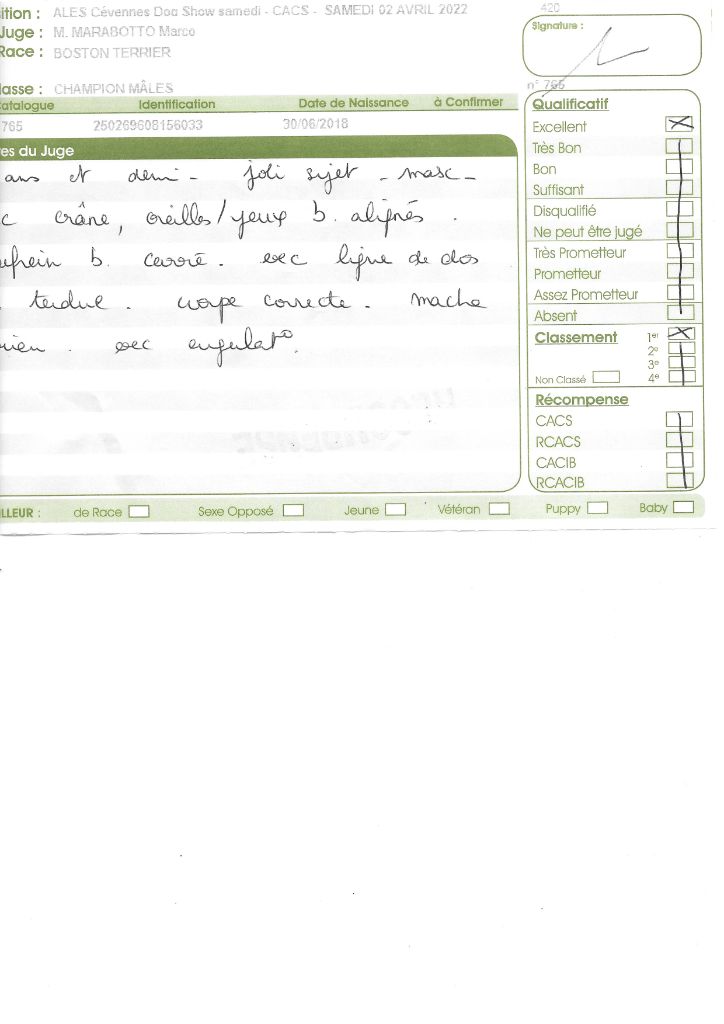 ition : ALES Cévennes Dog Show samedi - CACS - SAMEDI 02 AVRIL 2022
420
Juge : M. MARABOTTO Marco
Signature :
Race : BOSTON TERRIER
lasse : CHAMPION MÂLES
n° 765
atalogue Identification Date de Naissance à Confirmer
765 250269608156033 30/06/2018
res du Juge
ans et demi - joli sujet - masc -
c crâne, oreilles/yeux b. alignés .
b. carré . exc ligne de dos
tendue . croupe correcte . mache
bien . exc angulat°.
Qualificatif
Excellent
Très Bon
Bon
Suffisant
Disqualifié
Ne peut être jugé
Très Prometteur
Prometteur
Assez Prometteur
Absent
Classement 1er
2e
3e
Non Classé 4e
Récompense
CACS
RCACS
CACIB
RCACIB
ILLEUR : de Race Sexe Opposé Jeune Vétéran Puppy Baby